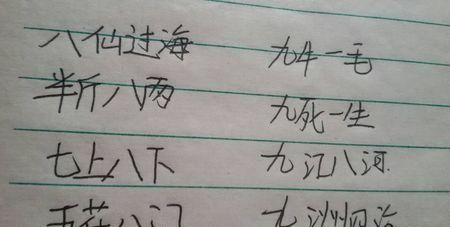 八仙过海 九牛一毛
半斤八两 九死一生
七上八下 九江八河
五花八门 九